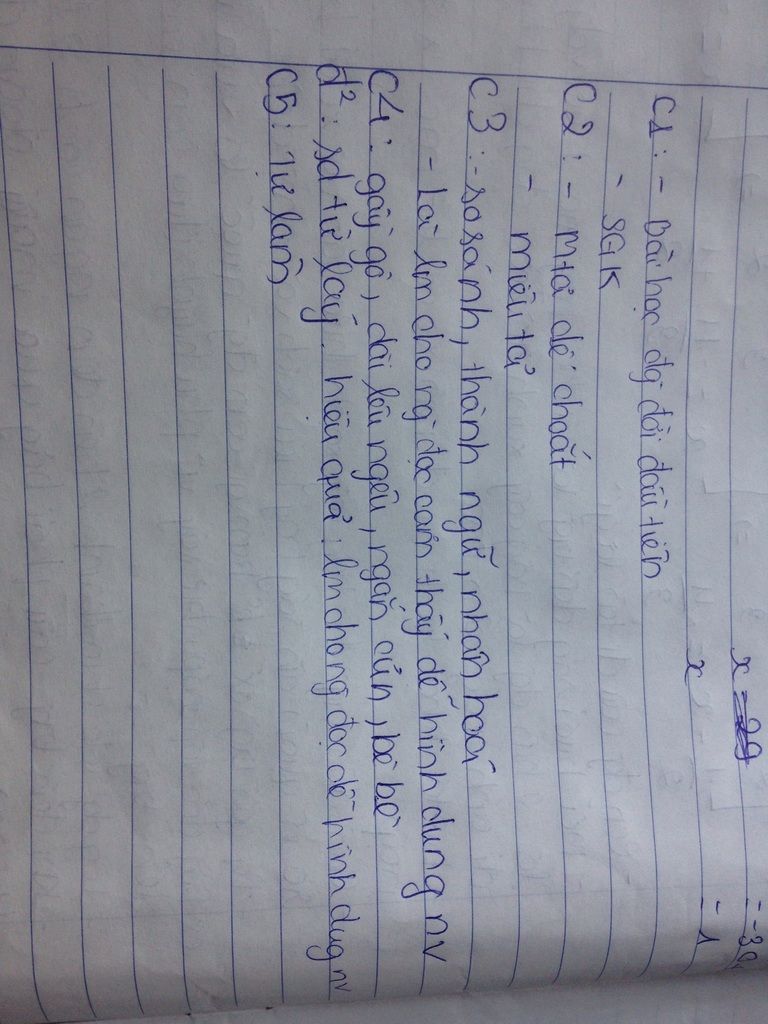 x = 29 = -39
x = 1
C1: - Bài học đg đời đầu tiên
- SGK
C2: - Mtả dế choắt
- miêu tả
C3: - so sánh, thành ngữ, nhân hoá
- Là lm cho ng đọc cảm thấy dễ hình dung nv
C4: gầy gò, dài lêu ngêu, ngắn củn, bè bè
đ²: sd từ láy. hiệu quả: lm cho ng đọc dễ hình dug nv
C5: Tự làm